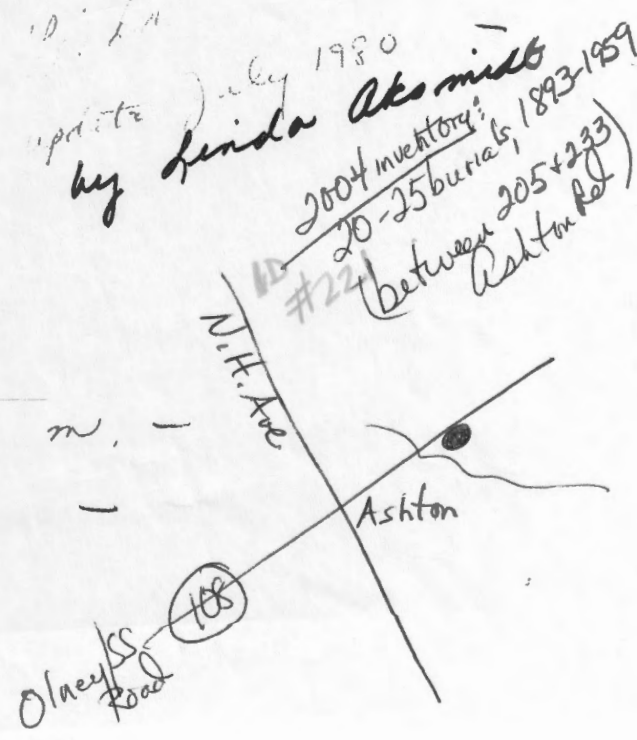 update July 1980
by Linda Aksmidt
2004 inventory:
20-25 burials, 1893-1959
(between 205 + 233
Ashton Rd)
ID
#221
N.H. Ave
m. —
—
Ashton
108
Olney/SS.
Road